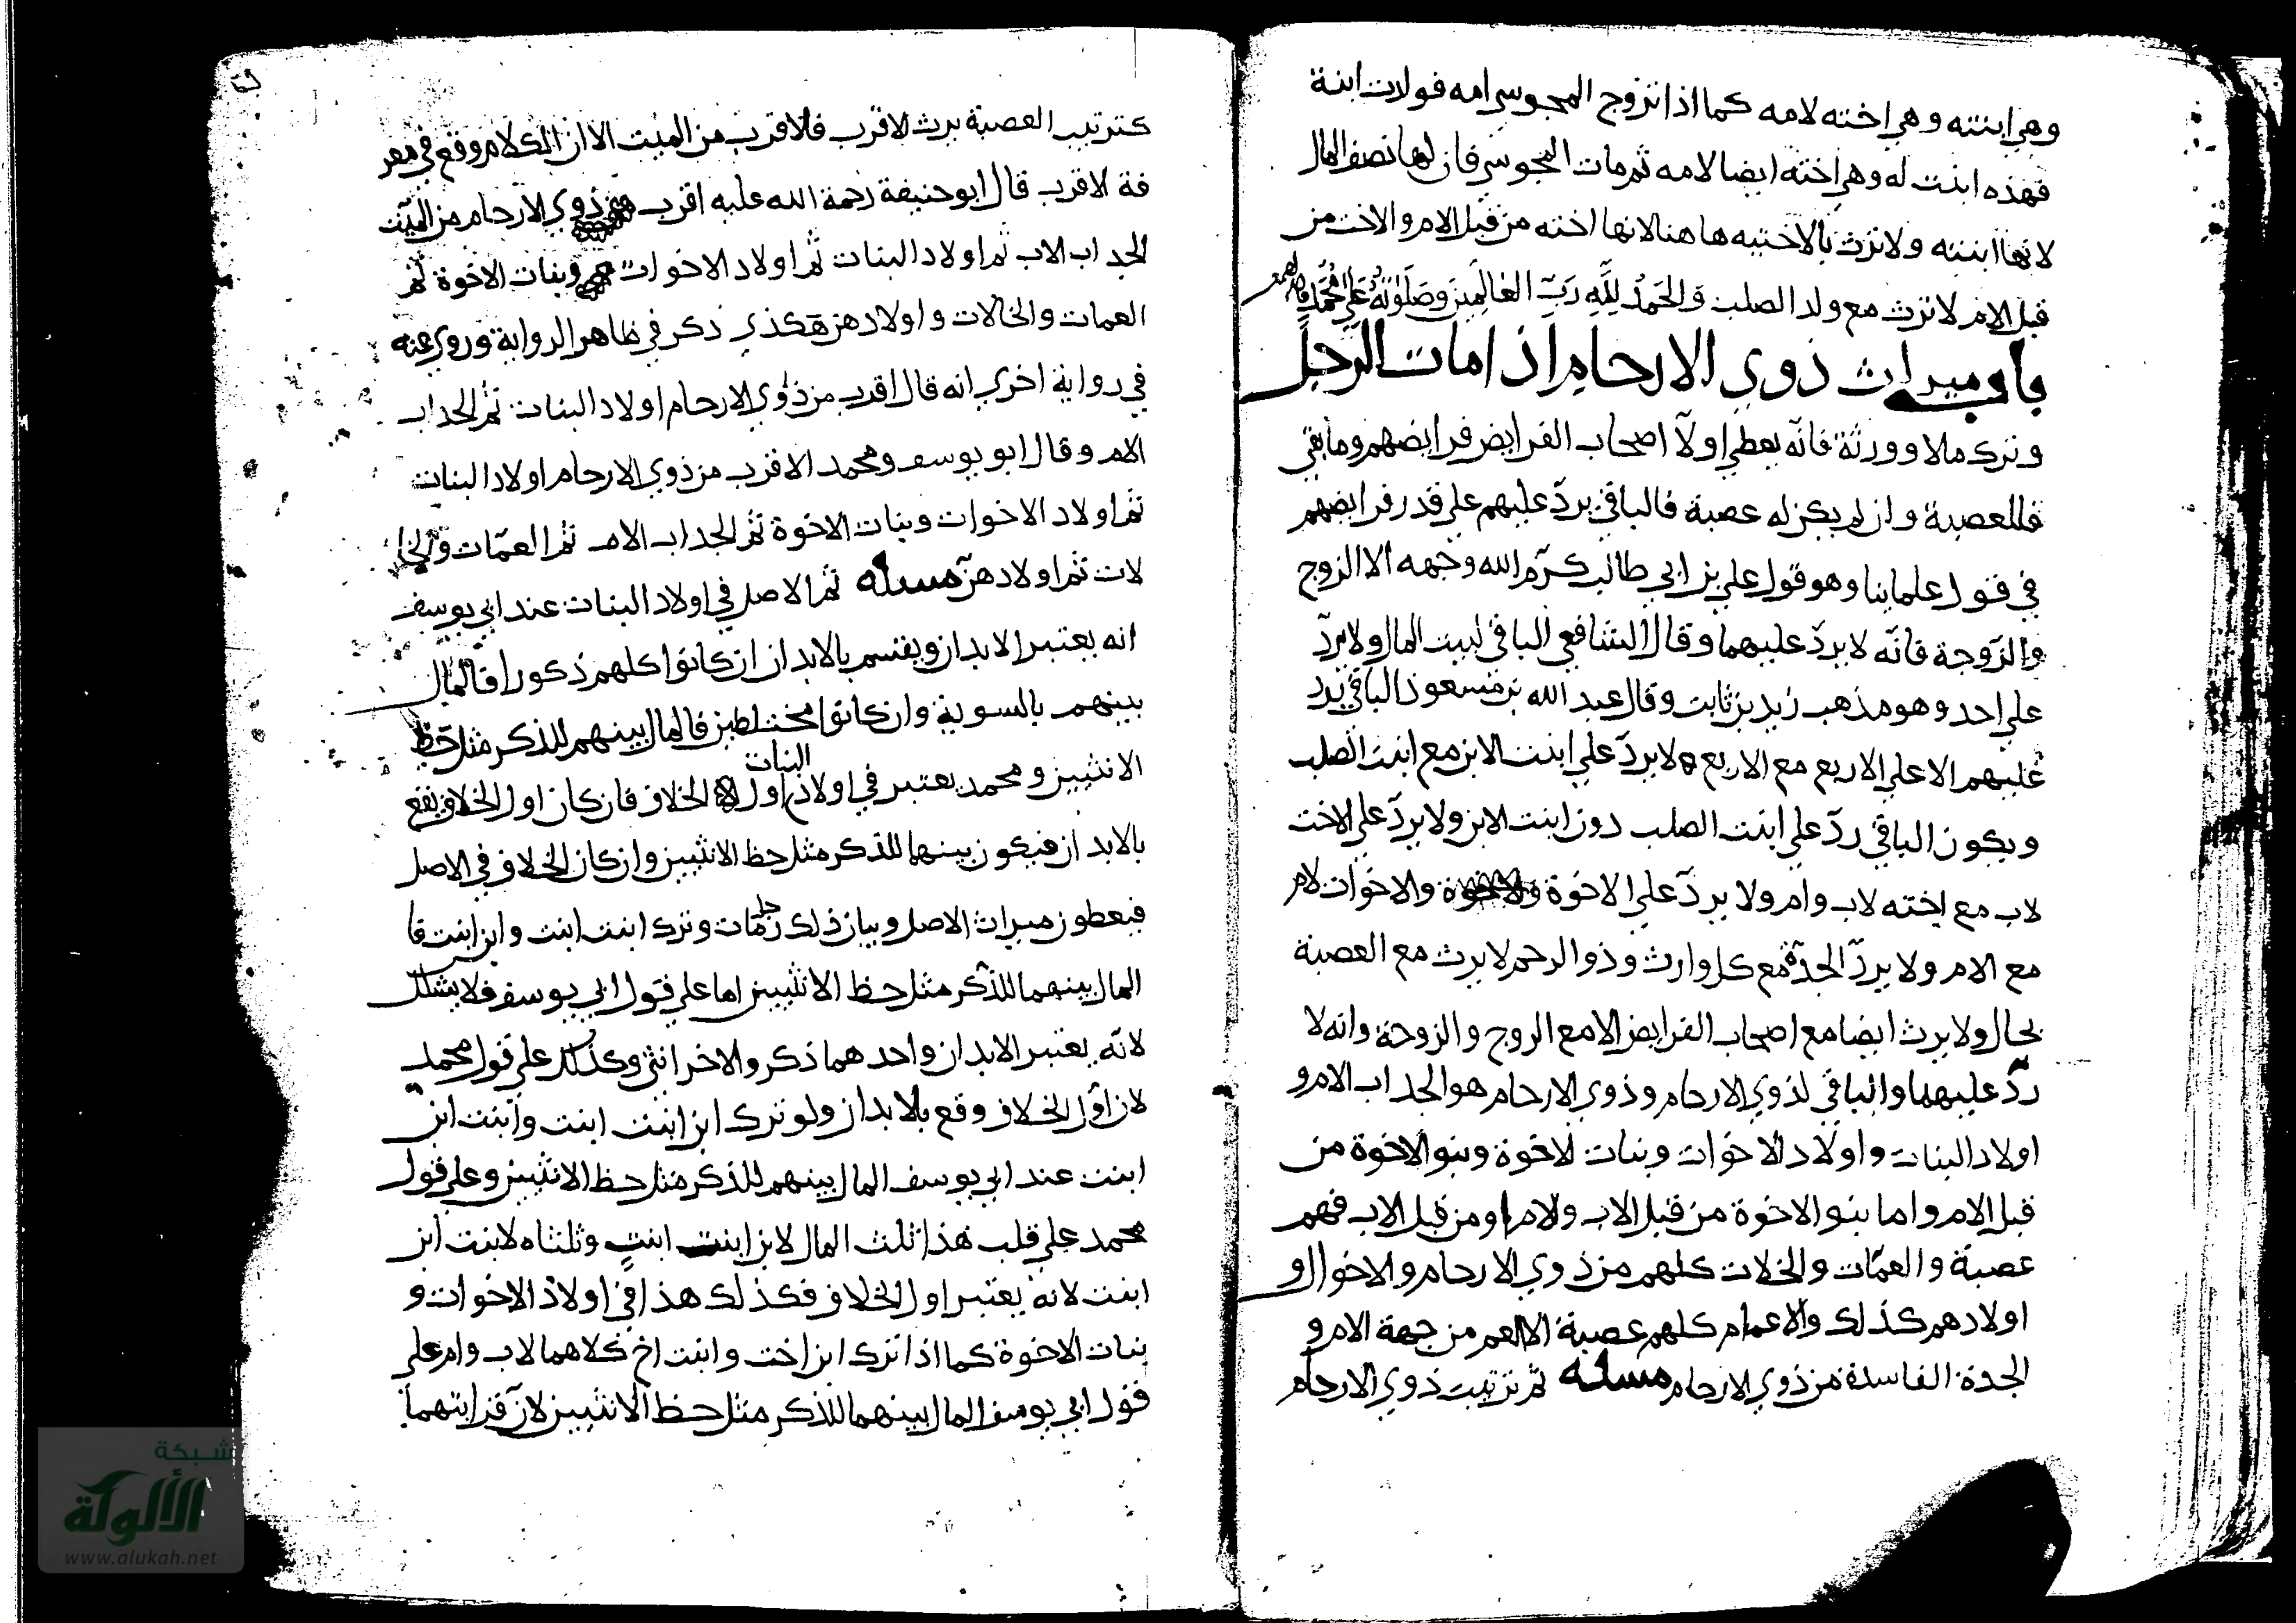 وهي ابنته وهي اخته لامه كما اذا تزوج المجوسي امه فولات ابنة
فهذه ابنت له وهي اخته ايضا لامه ثم مات المجوسي فان لها نصف المال
لانها ابنته ولا ترث بالاختيه ها هنا لانها اخته من قبل الام والاخت من
قبل الام لا ترث مع ولد الصلب وَالحَمدُ لِلَّهِ رَبِّ العَالَمِينَ وَصَلَوٰتُهُ عَلَى مُحَمَّد
باب ميراث ذوي الارحام اذا مات الرجل
وترك مالا وورثة فانّه يعطي اولاً اصحاب الفرايض فرايضهم وما بقي
فللعصبة وان لم يكن له عصبة فالباقي يردّ عليهم علي قدر فرايضهم
في قول علماينا وهو قول علي بن ابي طالب كرّم الله وجهه الا الزوج
والزّوجة فانّه لا يردّ عليهما وقال الشافعي الباقي لبيت المال ولا يردّ
علي احد وهو مذهب زيد بن ثابت وقال عبد الله بن مسعود الباقي يرد
عليهم الا علي الاربع مع الاربع لا يردّ علي ابنت الابن مع ابنت الصلب
ويكون الباقي ردّ علي ابنت الصلب دون ابنت الابن ولا يردّ علي الاخت
لاب مع اخته لاب وام ولا يردّ علي الاخوة والاخوات لام
مع الام ولا يردّ الجدّة مع كل وارث وذو الرحم لا يرث مع العصبة
بحال ولا يرث ايضا مع اصحاب الفرايض الا مع الزوج والزوجة وانه لا
ردّ عليهما والباقي لذوي الارحام وذوي الارحام هو الجد اب الام و
اولاد البنات واولاد الاخوات وبنات لاخوة وبنو الاخوة من
قبل الام واما بنو الاخوة من قبل الاب ولام او من قبل الاب فهم
عصبة والعمّات والخلات كلهم من ذوي الارحام والاخوال و
اولادهم كذلك والاعمام كلهم عصبة الا العم من جهة الام و
الجدة الفاسدة من ذوي الارحام مسئله ثم ترتيب ذوي الارحام
كترتيب العصبة يرث الاقرب فالاقرب من الميت الا ان الكلام وقع في معر
فة الاقرب قال ابو حنيفة رحمة الله عليه اقرب ذوي الارحام من الميّت
الجد اب الاب ثم اولاد البنات ثم اولاد الاخوات وبنات الاخوة ثم
العمات والخالات واولادهن هكذي ذكر في ظاهر الرواية وروي عنه
في رواية اخري انه قال اقرب من ذوي الارحام اولاد البنات ثم الجد اب
الام وقال ابو يوسف ومحمد الاقرب من ذوي الارحام اولاد البنات
ثم اولاد الاخوات وبنات الاخوة ثم الجد اب الام ثم العمّات والخا
لات ثم اولادهنّ مسئله ثم الاصل في اولاد البنات عند ابي يوسف
انه يعتبر الابدان ويقسم بالابدان ان كانوا كلهم ذكورا فالمال
بينهم بالسوية وان كانوا مختلطين فالمال بينهم للذكر مثل حظ
الانثيين ومحمد يعتبر في اولاد البنات اول الخلاف فان كان اول الخلاف يقع
بالابدان فيكون بينهما للذكر مثل حظ الانثيين وان كان الخلاف في الاصل
فيعطون ميراث الاصل وبيان ذلك رجل مات وترك ابنت ابنت وابن ابنت فا
المال بينهما للذكر مثل حظ الانثيين اما علي قول ابي يوسف فلا يشكل
لانّه يعتبر الابدان واحدهما ذكر والاخر انثي وكذلك علي قول محمد
لان اوّل الخلاف وقع بالابدان ولو ترك ابن ابنت ابنت وابنت ابن
ابنت عند ابي يوسف المال بينهم للذكر مثل حظ الانثيين وعلي قول
محمد علي قلب هذا ثلث المال لابن ابنت ابنت وثلثاه لابنت ابن
ابنت لانه يعتبر اول الخلاف فكذلك هذا في اولاد الاخوات و
بنات الاخوة كما اذا ترك ابن اخت وابنت اخ كلاهما لاب وام علي
قول ابي يوسف المال بينهما للذكر مثل حظ الانثيين لان قرابتهما
شبكة
الألوكة
www.alukah.net